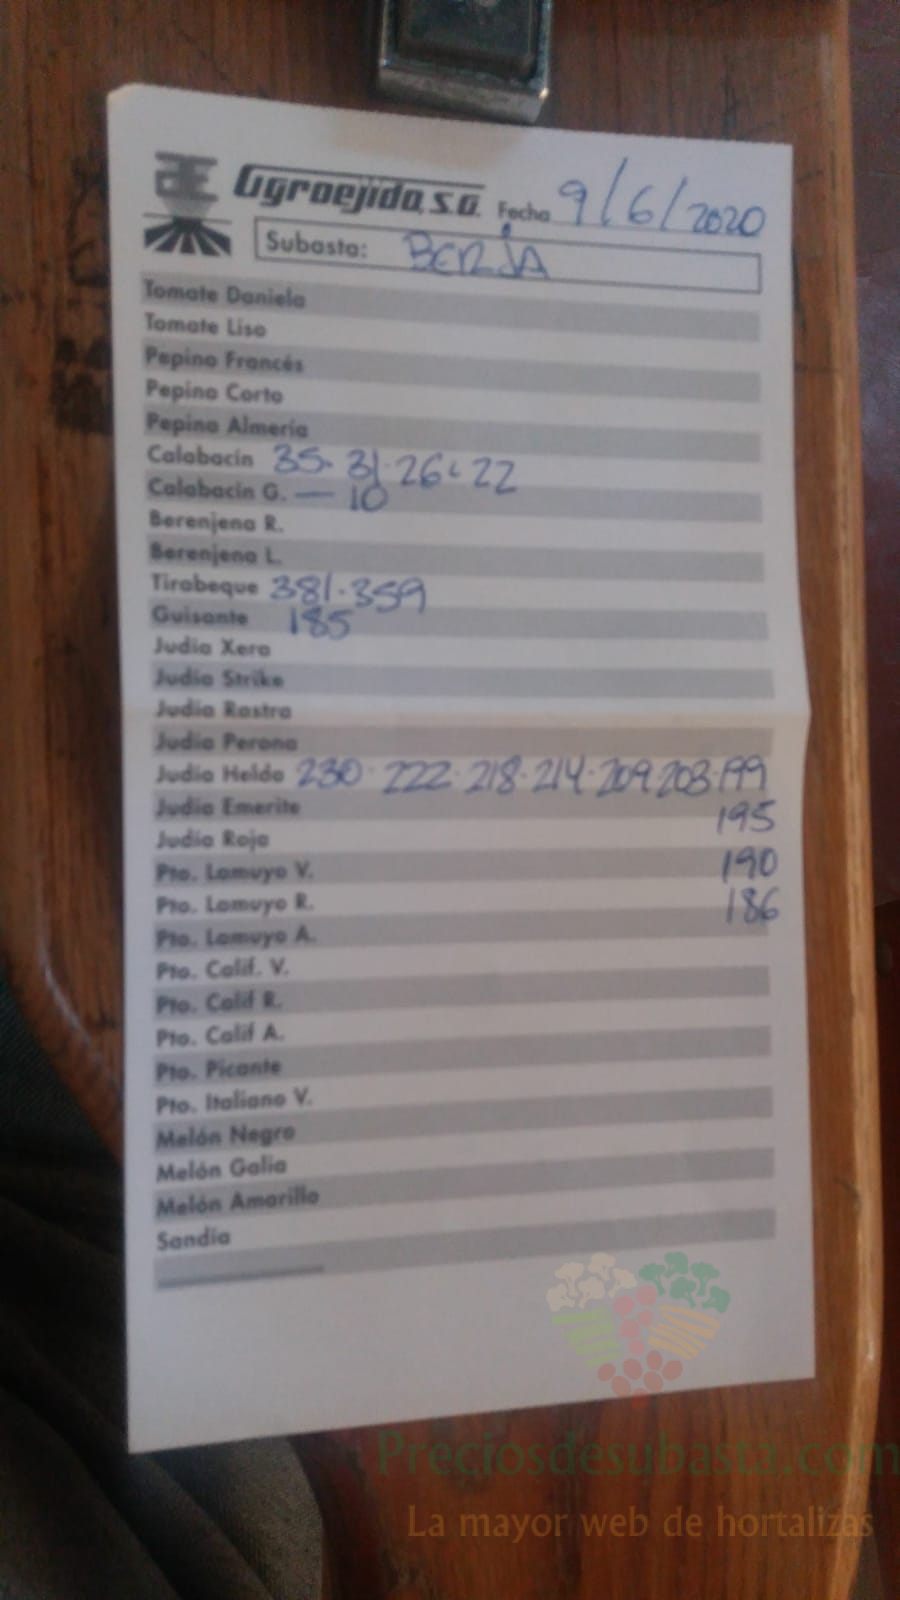 Agroejido, S.A. Fecha 9/6/2020
Subasta: BERJA
Tomate Daniela
Tomate Liso
Pepino Francés
Pepino Corto
Pepino Almería
Calabacín 35·31·26·22
Calabacín G. — 10
Berenjena R.
Berenjena L.
Tirabeque 381·359
Guisante 185
Judía Xera
Judía Strike
Judía Rastra
Judía Perona
Judía Helda 230·222·218·214·209·203·199
Judía Emerite 195
Judía Roja
Pto. Lamuyo V. 190
Pto. Lamuyo R. 186
Pto. Lamuyo A.
Pto. Calif. V.
Pto. Calif R.
Pto. Calif A.
Pto. Picante
Pto. Italiano V.
Melón Negro
Melón Galia
Melón Amarillo
Sandía
Preciosdesubasta.com
La mayor web de hortalizas